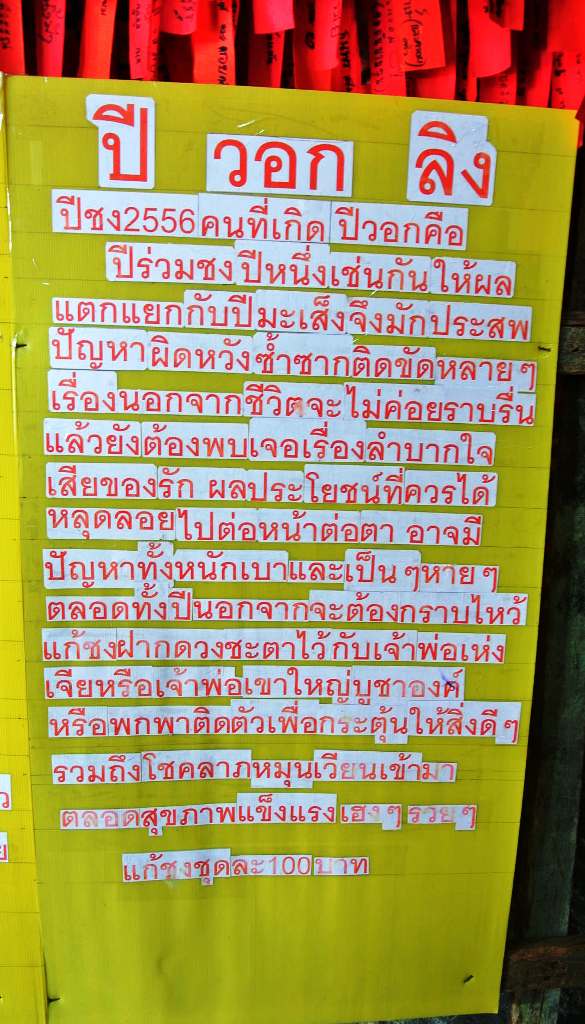 ปี วอก ลิง
ปีชง2556 คนที่เกิด ปีวอกคือ
ปีร่วมชง ปีหนึ่งเช่นกัน ให้ผล
แตกแยกกับปีมะเส็งจึงมักประสพ
ปัญหาผิดหวังซ้ำซากติดขัดหลายๆ
เรื่องนอกจากชีวิตจะไม่ค่อยราบรื่น
แล้วยังต้องพบเจอเรื่องลำบากใจ
เสียของรัก ผลประโยชน์ที่ควรได้
หลุดลอยไปต่อหน้าต่อตา อาจมี
ปัญหาทั้งหนักเบาและเป็นๆหายๆ
ตลอดทั้งปีนอกจากจะต้องกราบไหว้
แก้ชงฝากดวงชะตาไว้กับเจ้าพ่อเห่ง
เจียหรือเจ้าพ่อเขาใหญ่บูชาองค์
หรือพกพาติดตัวเพื่อกระตุ้นให้สิ่งดีๆ
รวมถึงโชคลาภหมุนเวียนเข้ามา
ตลอดสุขภาพแข็งแรง เฮงๆ รวยๆ
แก้ชงชุดละ100บาท